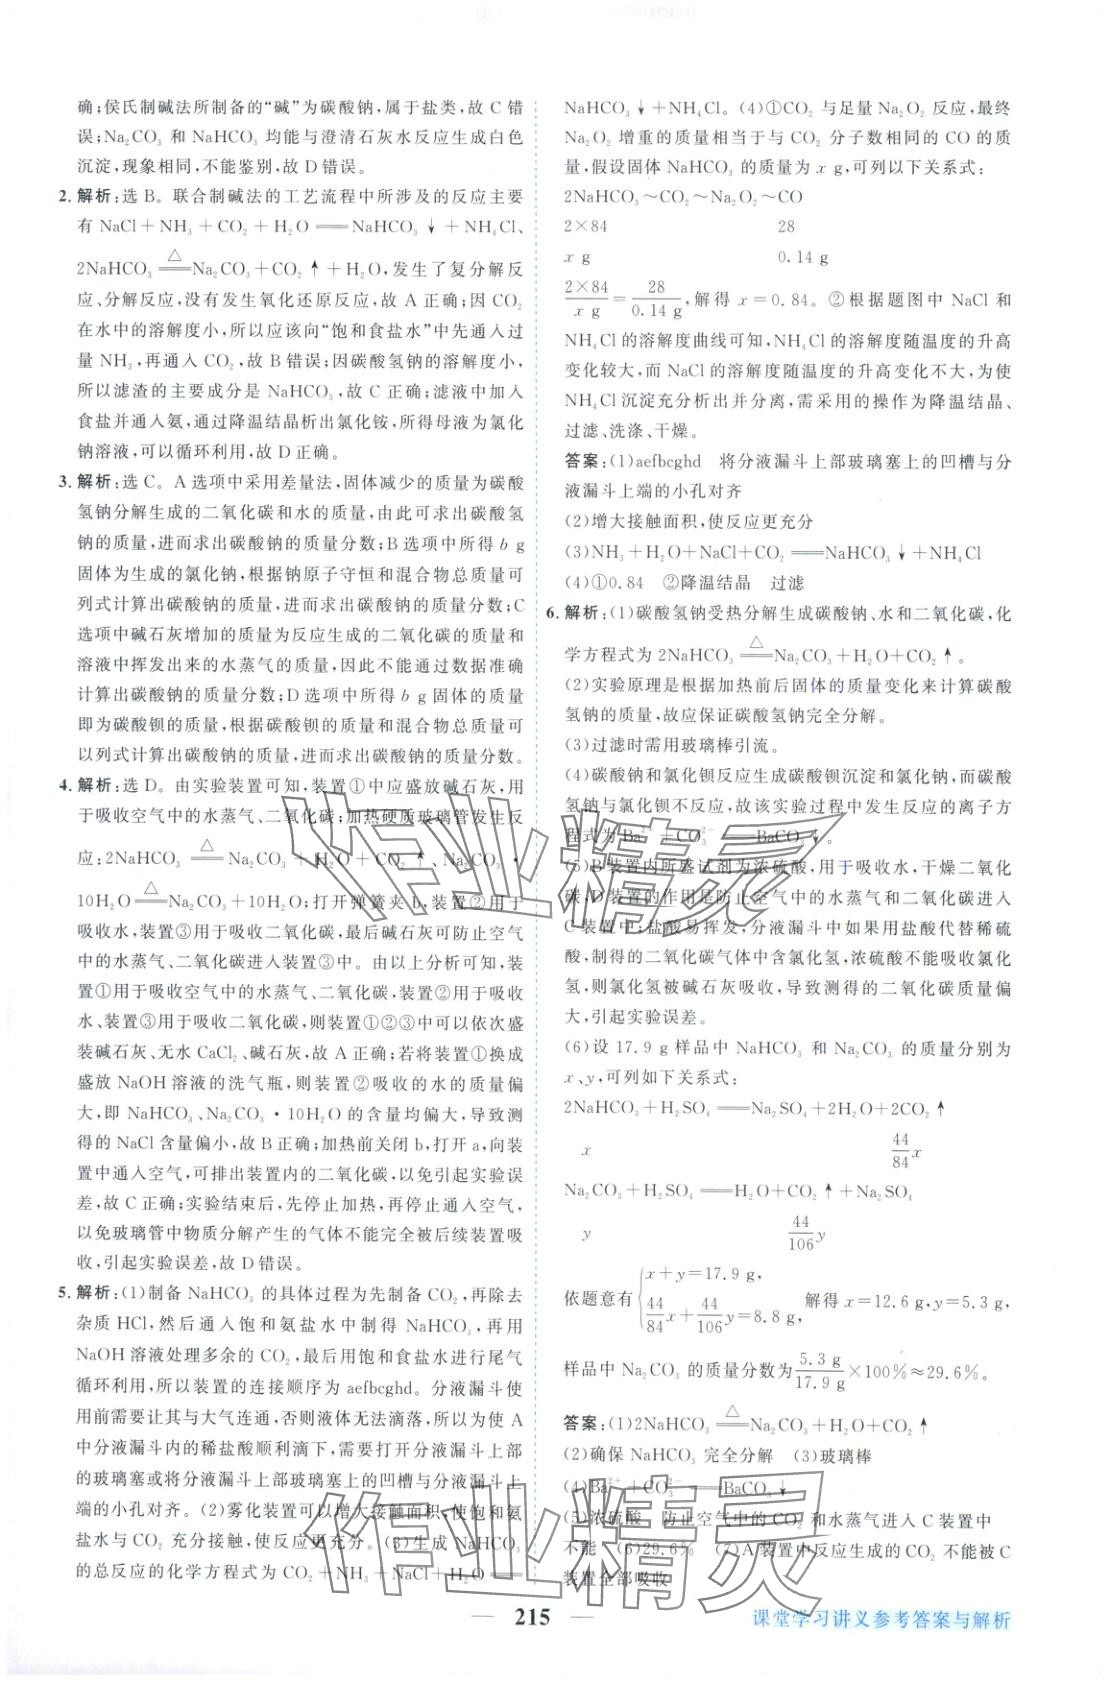 确;侯氏制碱法所制备的“碱”为碳酸钠,属于盐类,故 C 错
误;Na₂CO₃ 和 NaHCO₃ 均能与澄清石灰水反应生成白色
沉淀,现象相同,不能鉴别,故 D 错误。
2. 解析:选 B。联合制碱法的工艺流程中所涉及的反应主要
有 NaCl+NH₃+CO₂+H₂O══NaHCO₃↓+NH₄Cl、
2NaHCO₃ ══(△) Na₂CO₃+CO₂↑+H₂O,发生了复分解反
应、分解反应,没有发生氧化还原反应,故 A 正确;因 CO₂
在水中的溶解度小,所以应该向“饱和食盐水”中先通入过
量 NH₃,再通入 CO₂,故 B 错误;因碳酸氢钠的溶解度小,
所以滤渣的主要成分是 NaHCO₃,故 C 正确;滤液中加入
食盐并通入氨,通过降温结晶析出氯化铵,所得母液为氯化
钠溶液,可以循环利用,故 D 正确。
3. 解析:选 C。A 选项中采用差量法,固体减少的质量为碳酸
氢钠分解生成的二氧化碳和水的质量,由此可求出碳酸氢
钠的质量,进而求出碳酸钠的质量分数;B 选项中所得 b g
固体为生成的氯化钠,根据钠原子守恒和混合物总质量可
列式计算出碳酸钠的质量,进而求出碳酸钠的质量分数;C
选项中碱石灰增加的质量为反应生成的二氧化碳的质量和
溶液中挥发出来的水蒸气的质量,因此不能通过数据准确
计算出碳酸钠的质量分数;D 选项中所得 b g 固体的质量
即为碳酸钡的质量,根据碳酸钡的质量和混合物总质量可
以列式计算出碳酸钠的质量,进而求出碳酸钠的质量分数。
4. 解析:选 D。由实验装置可知,装置①中应盛放碱石灰,用
于吸收空气中的水蒸气、二氧化碳;加热硬质玻璃管发生反
应:2NaHCO₃ ══(△) Na₂CO₃+H₂O+CO₂↑、Na₂CO₃·
10H₂O ══(△) Na₂CO₃+10H₂O;打开弹簧夹 b,装置②用于
吸收水,装置③用于吸收二氧化碳,最后碱石灰可防止空气
中的水蒸气、二氧化碳进入装置③中。由以上分析可知,装
置①用于吸收空气中的水蒸气、二氧化碳,装置②用于吸收
水、装置③用于吸收二氧化碳,则装置①②③中可以依次盛
装碱石灰、无水 CaCl₂、碱石灰,故 A 正确;若将装置①换成
盛放 NaOH 溶液的洗气瓶,则装置②吸收的水的质量偏
大,即 NaHCO₃、Na₂CO₃·10H₂O 的含量均偏大,导致测
得的 NaCl 含量偏小,故 B 正确;加热前关闭 b,打开 a,向装
置中通入空气,可排出装置内的二氧化碳,以免引起实验误
差,故 C 正确;实验结束后,先停止加热,再停止通入空气,
以免玻璃管中物质分解产生的气体不能完全被后续装置吸
收,引起实验误差,故 D 错误。
5. 解析:(1)制备 NaHCO₃ 的具体过程为先制备 CO₂,再除去
杂质 HCl,然后通入饱和氨盐水中制得 NaHCO₃,再用
NaOH 溶液处理多余的 CO₂,最后用饱和食盐水进行尾气
循环利用,所以装置的连接顺序为 aefbcghd。分液漏斗使
用前需要让其与大气连通,否则液体无法滴落,所以为使 A
中分液漏斗内的稀盐酸顺利滴下,需要打开分液漏斗上部
的玻璃塞或将分液漏斗上部玻璃塞上的凹槽与分液漏斗上
端的小孔对齐。(2)雾化装置可以增大接触面积,使饱和氨
盐水与 CO₂ 充分接触,使反应更充分。(3)生成 NaHCO₃
的总反应的化学方程式为 CO₂+NH₃+NaCl+H₂O══
NaHCO₃↓+NH₄Cl。(4)①CO₂ 与足量 Na₂O₂ 反应,最终
Na₂O₂ 增重的质量相当于与 CO₂ 分子数相同的 CO 的质
量,假设固体 NaHCO₃ 的质量为 x g,可列以下关系式:
2NaHCO₃～CO₂～Na₂O₂～CO
2×84 28
x g 0.14 g
2×84/x g=28/0.14 g,解得 x=0.84。②根据题图中 NaCl 和
NH₄Cl 的溶解度曲线可知,NH₄Cl 的溶解度随温度的升高
变化较大,而 NaCl 的溶解度随温度的升高变化不大,为使
NH₄Cl 沉淀充分析出并分离,需采用的操作为降温结晶、
过滤、洗涤、干燥。
答案:(1)aefbcghd 将分液漏斗上部玻璃塞上的凹槽与分
液漏斗上端的小孔对齐
(2)增大接触面积,使反应更充分
(3)NH₃+H₂O+NaCl+CO₂══NaHCO₃↓+NH₄Cl
(4)①0.84 ②降温结晶 过滤
6. 解析:(1)碳酸氢钠受热分解生成碳酸钠、水和二氧化碳,化
学方程式为 2NaHCO₃ ══(△) Na₂CO₃+H₂O+CO₂↑。
(2)实验原理是根据加热前后固体的质量变化来计算碳酸
氢钠的质量,故应保证碳酸氢钠完全分解。
(3)过滤时需用玻璃棒引流。
(4)碳酸钠和氯化钡反应生成碳酸钡沉淀和氯化钠,而碳酸
氢钠与氯化钡不反应,故该实验过程中发生反应的离子方
程式为 Ba²⁺+CO₃²⁻══BaCO₃↓。
(5)B 装置内所盛试剂为浓硫酸,用于吸收水,干燥二氧化
碳,D 装置的作用是防止空气中的水蒸气和二氧化碳进入
C 装置中;盐酸易挥发,分液漏斗中如果用盐酸代替稀硫
酸,制得的二氧化碳气体中含氯化氢,浓硫酸不能吸收氯化
氢,则氯化氢被碱石灰吸收,导致测得的二氧化碳质量偏
大,引起实验误差。
(6)设 17.9 g 样品中 NaHCO₃ 和 Na₂CO₃ 的质量分别为
x、y,可列如下关系式:
2NaHCO₃+H₂SO₄══Na₂SO₄+2H₂O+2CO₂↑
x 44/84 x
Na₂CO₃+H₂SO₄══H₂O+CO₂↑+Na₂SO₄
y 44/106 y
依题意有{x+y=17.9 g, 44/84 x+44/106 y=8.8 g, 解得 x=12.6 g,y=5.3 g,
样品中 Na₂CO₃ 的质量分数为 5.3 g/17.9 g×100%≈29.6%。
答案:(1)2NaHCO₃ ══(△) Na₂CO₃+H₂O+CO₂↑
(2)确保 NaHCO₃ 完全分解 (3)玻璃棒
(4)Ba²⁺+CO₃²⁻══BaCO₃↓
(5)浓硫酸 防止空气中的 CO₂ 和水蒸气进入 C 装置中
不能 (6)29.6% (7)A 装置中反应生成的 CO₂ 不能被 C
装置全部吸收
作业精灵
作业精灵
215
课堂学习讲义参考答案与解析